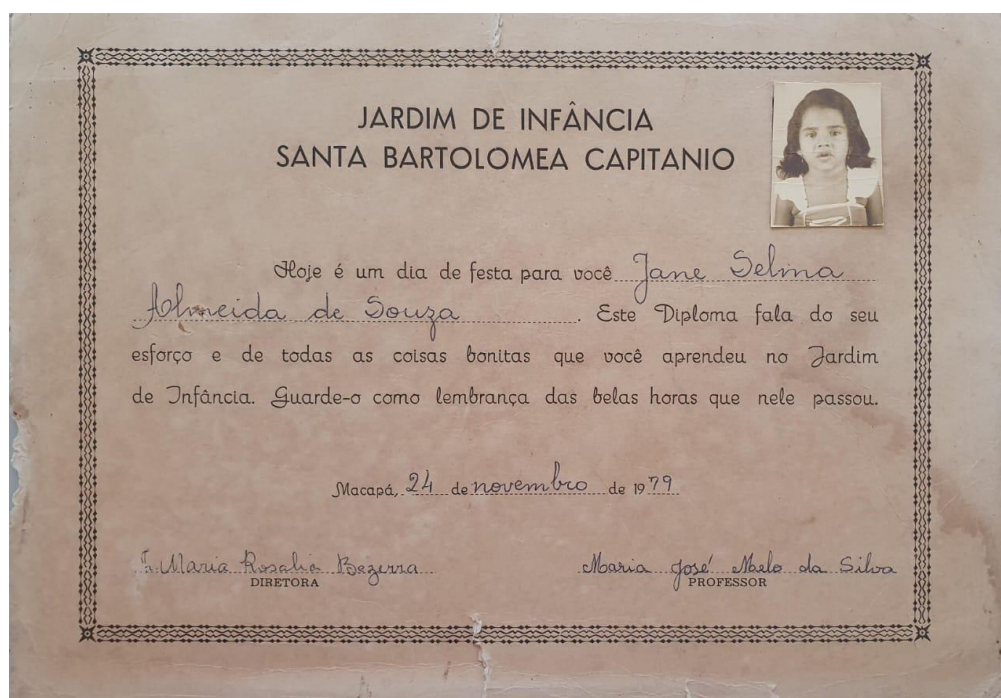 JARDIM DE INFÂNCIA
SANTA BARTOLOMEA CAPITANIO
Hoje é um dia de festa para você Jane Selma
Almeida de Souza. Este Diploma fala do seu
esforço e de todas as coisas bonitas que você aprendeu no Jardim
de Infância. Guarde-o como lembrança das belas horas que nele passou.
Macapá, 24 de novembro de 1979
Maria Rosalia Bezerra
DIRETORA
Maria José Melo da Silva
PROFESSOR